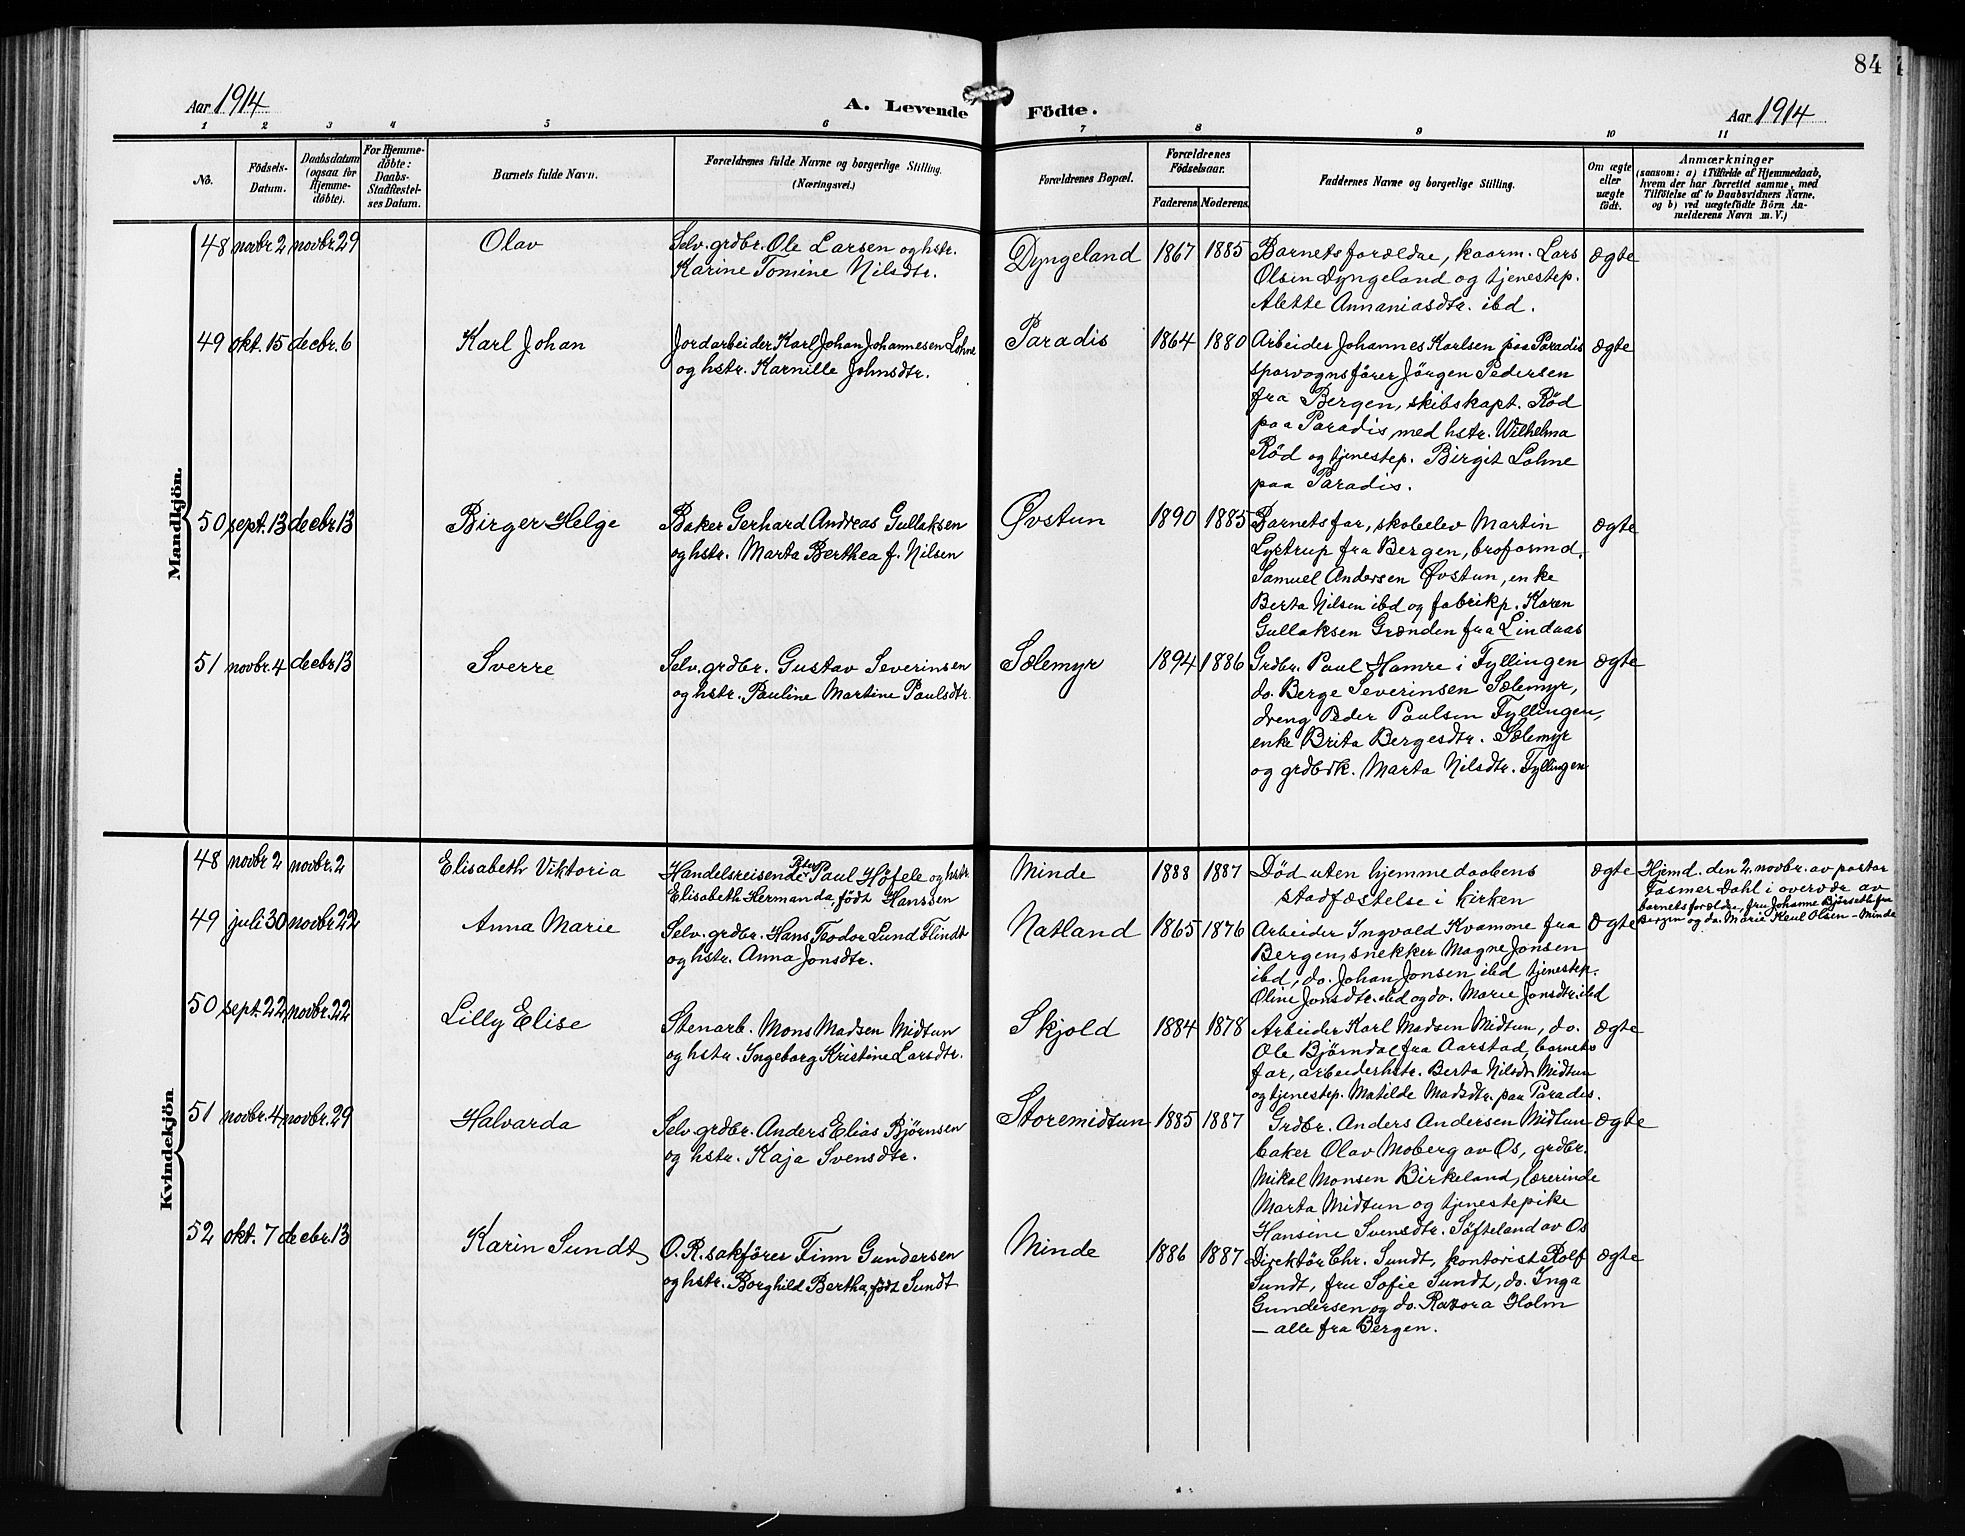 84
Aar 1914
A. Levende Födte.
Aar 1914
1 2 3 4 5 6 7 8 9 10 11
No.
Födsels-
Datum.
Daabsdatum
(ogsaa for
Hjemme-
döbte).
For Hjemme-
döbte:
Daabs-
Stadfæstel-
ses Datum.
Barnets fulde Navn.
Forældrenes fulde Navne og borgerlige Stilling.
(Næringsvei.)
Forældrenes Bopæl.
Forældrenes
Födselsaar.
Faderens.
Moderens.
Faddernes Navne og borgerlige Stilling.
Om ægte
eller
uægte
födt.
Anmærkninger
(saasom: a) i Tilfælde af Hjemmedaab,
hvem der har forrettet samme, med
Tilföielse af to Daabsvidners Navne,
og b) ved uægtefödte Börn An-
melderens Navn m. V.)
Mandkjön.
48 novbr. 2 novbr. 29
Olav
Selv. grdbr. Ole Larsen og hstr.
Karine Tomine Nilsdtr.
Dyngeland 1867 1885
Barnets forældre, kaarm. Lars
Olsen Dyngeland og tjenestep.
Alette Annaniasdtr. ibd.
ægte
49 okt. 15 decbr. 6
Karl Johan
Jordarbeider Karl Johan Johannesen Lohne
og hstr. Karnille Johnsdtr.
Paradis 1864 1880
Arbeider Johannes Karlsen paa Paradis
sporvognsfører Jörgen Pedersen
fra Bergen, skibskapt. Röd
paa Paradis, med hstr. Wilhelma
Röd og tjenestep. Birgit Lohne
paa Paradis.
ægte
50 sept. 13 decbr. 13
Birger Helge
Baker Gerhard Andreas Gullaksen
og hstr. Marta Berthea f. Nilsen
Øvstun 1890 1885
Barnets far, skoleelev Martin
Lystrup fra Bergen, broformd.
Samuel Andersen Øvstun, enke
Berta Nilsen ibd og fabrikp. Karen
Gullaksen Grænden fra Lindaas
ægte
51 novbr. 4 decbr. 13
Sverre
Selv. grdbr. Gustav Severinsen
og hstr. Pauline Martine Paulsdtr.
Sælemyr 1894 1886
Grdbr. Paul Hamre i Fyllingen
do. Berge Severinsen Sælemyr,
dreng Peder Paulsen Fyllingen,
enke Brita Bergesdtr. Sælemyr
og grdbrk. Marta Nilsdtr. Fyllingen
ægte
Kvindekjön
48 novbr. 2 novbr. 2
Elisabeth Viktoria
Handelsreisende Peter Paul Höfele og hstr
Elisabeth Hermanda, födt Hanssen
Minde 1888 1887
Död uten hjemmedaabens
stadfæstelse i kirken
ægte
Hjemd. den 2. novbr. av pastor
Fasmer Dahl i overvær av
barnets forældre, fru Johanne Björseth fra
Bergen og do. Marie Keul Olsen - Minde
49 juli 30 novbr. 22
Anna Marie
Selv. grdbr. Hans Teodor Lund Flindt
og hstr. Anna Jonsdtr.
Natland 1865 1876
Arbeider Ingvald Kvamme fra
Bergen, snekker Magne Jonsen
ibd, do. Johan Jonsen ibd tjenestep.
Oline Jonsdtr. ibd og do. Marie Jonsdtr. ibd
ægte
50 sept. 22 novbr. 22
Lilly Elise
Stenarb. Mons Madsen Midtun
og hstr. Ingeborg Kristine Larsdtr.
Skjold 1884 1878
Arbeider Karl Madsen Midtun, do.
Ole Bjørndal fra Aarstad, barnets
far, arbeiderhstr. Berta Nilsdtr Midtun
og tjenestep. Matilde Madsdtr. paa Paradis.
ægte
51 novbr. 4 novbr. 29
Halvarda
Selv. grdbr. Anders Elias Bjørnsen
og hstr. Kaja Svensdtr.
Storemidtun 1885 1887
Grdbr. Anders Andersen Midtun
baker Olav Moberg av Os, grdbr.
Mikal Monsen Birkeland, lærerinde
Marta Midtun og tjenestepike
Hansine Svensdtr. Söfteland av Os
ægte
52 okt. 7 decbr. 13
Karin Sundt
O. R. sakfører Finn Gundersen
og hstr. Borghild Bertha, födt Sundt
Minde 1886 1887
Direktör Chr. Sundt, kontorist Rolf
Sundt, fru Sofie Sundt, do. Inga
Gundersen og do. Holm
— alle fra Bergen.
ægte